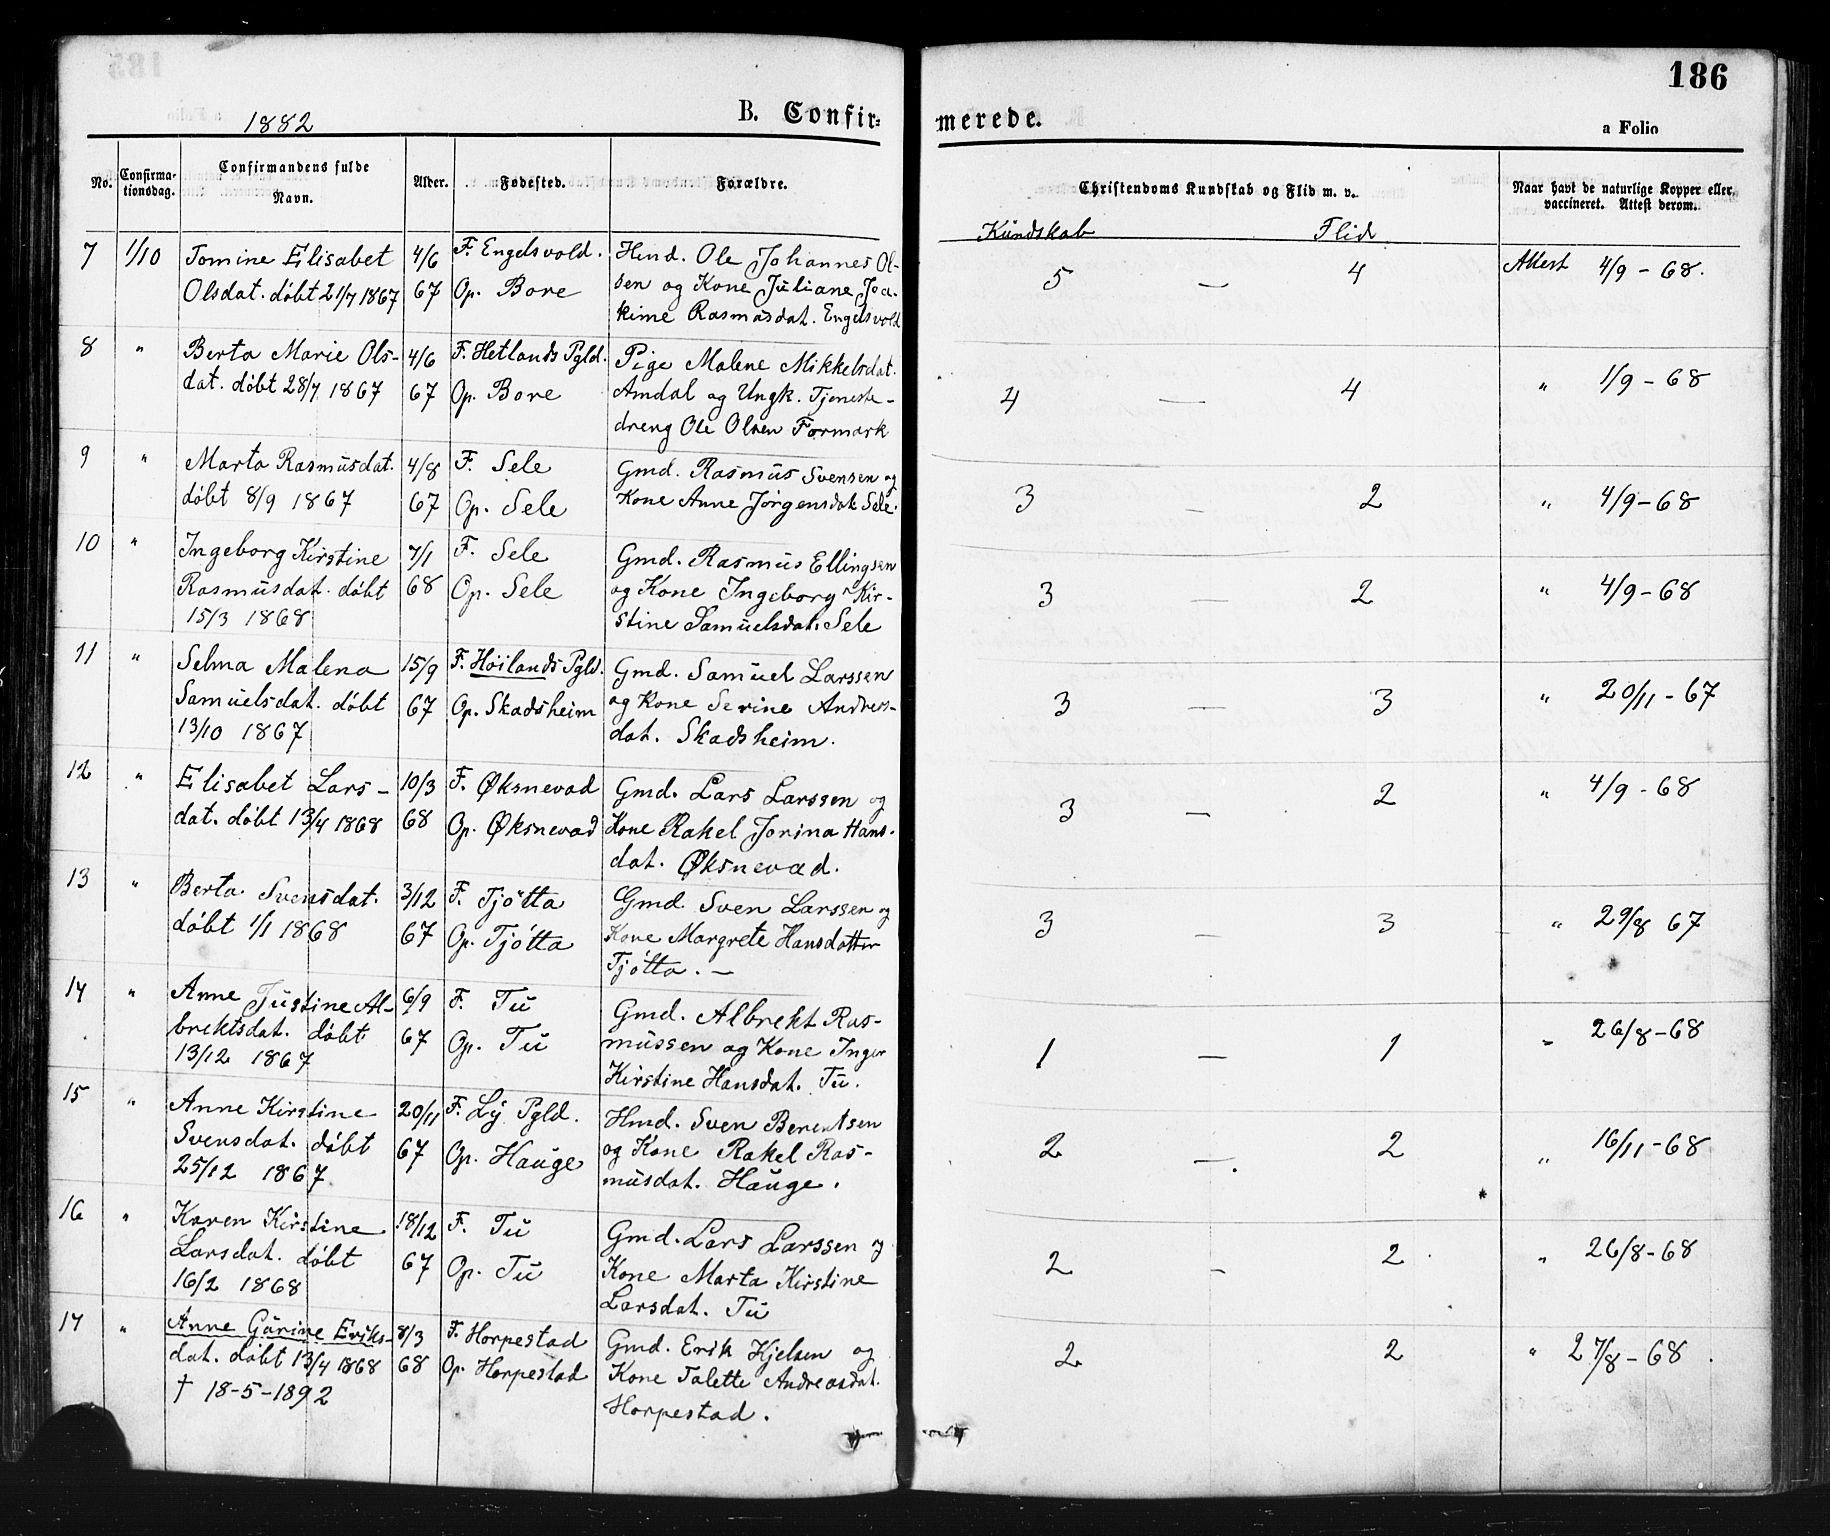 186
1882 B. Confir= merede. a Folio
No. Confirma-tionsdag. Confirmandens fulde Navn. Alder. Fødested. Forældre. Christendoms Kundskab og Flid m. v. Naar havt de naturlige Kopper eller vaccineret. Attest derom.
Kundskab Flid
7 1/10 Tomine Elisabet 4/6 F. Engelsvold. Hmd. Ole Johannes Ol-
Olsdat. døbt 21/7 1867 67 Op. Bore sen og Kone Juliane Joa- 5 — 4 Attest 4/9 - 68.
kime Rasmusdat. Engelsvold
8 " Berta Marie Ols- 4/6 F. Hetlands Pgld. Pige Malene Mikkelsdat.
dat. døbt 28/7 1867 67 Op. Bore Amdal og Ungk. Tjeneste- 4 — 4 " 1/9 - 68
dreng Ole Olsen Formark
9 " Marta Rasmusdat. 4/8 F. Sele Gmd. Rasmus Svensen og
døbt 8/9 1867 67 Op. Sele Kone Anne Jørgensdat. Sele. 3 — 2 " 4/9 - 68
10 " Ingeborg Kirstine 7/1 F. Sele Gmd. Rasmus Ellingsen
Rasmusdat. døbt 68 Op. Sele og Kone Ingeborg Kir- 3 — 2 " 4/9 - 68
15/3 1868 stine Samuelsdat. Sele
11 " Selma Malena 15/9 F. Høilands Pgld. Gmd. Samuel Larssen
Samuelsdat. døbt 67 Op. Skadsheim og Kone Serine Andreas- 3 — 3 " 20/11 - 67
13/10 1867 dat. Skadsheim.
12 " Elisabet Lars- 10/3 F. Øksnevad Gmd. Lars Larssen og
dat. døbt 13/4 1868 68 Op. Øksnevad Kone Rakel Jorina Hans- 3 — 2 " 4/9 - 68
dat. Øksnevad.
13 " Berta Svensdat. 3/12 F. Tjøtta Gmd. Sven Larssen og
døbt 1/1 1868 67 Op. Tjøtta Kone Margrete Hansdatter 3 — 3 " 29/8 67
Tjøtta. —
14 " Anne Justine Al- 6/9 F. Tu Gmd. Albrekt Ras-
brektsdat. døbt 67 Op. Tu mussen og Kone Inger 1 — 1 " 26/8 - 68
13/12 1867 Kirstine Hansdat. Tu.
15 " Anne Kirstine 20/11 F. Ly Pgld. Hmd. Sven Berentsen
Svensdat. døbt 67 Op. Hauge og Kone Rakel Ras- 2 — 2 " 16/11 - 68
25/12 1867 musdat. Hauge.
16 " Karen Kirstine 18/12 F. Tu Gmd. Lars Larssen og
Larsdat. døbt 67 Op. Tu Kone Marta Kirstine 2 - 2 " 26/8 - 68
16/2 1868 Larsdat. Tu
17 " Anne Gurine Eriks- 8/3 F. Horpestad Gmd. Erik Kjelsen og
dat. døbt 13/4 1868 68 Op. Horpestad Kone Talette Andreasdat. 2 2 " 27/8 - 68
† 18-5-1892 Horpestad.